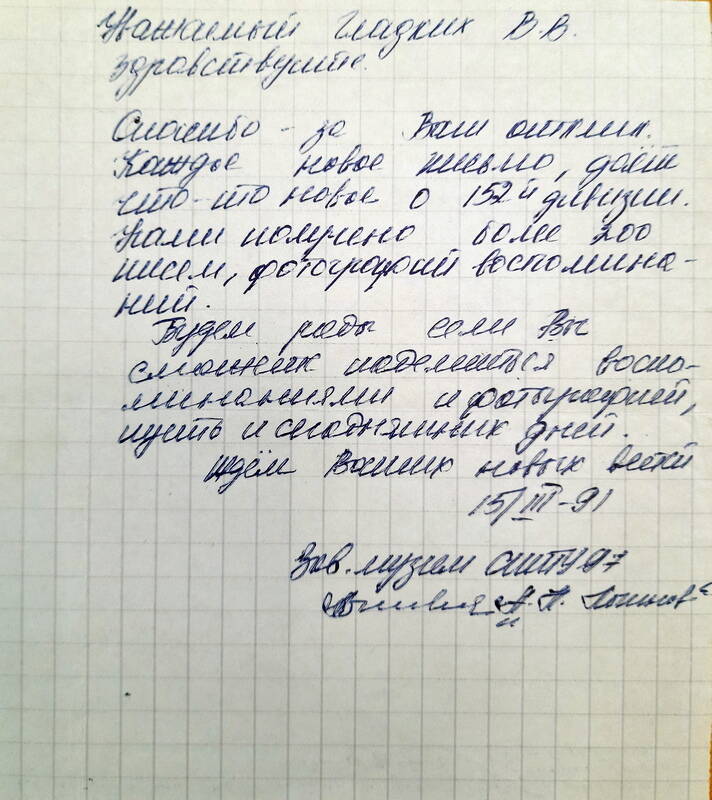 Уважаемый Гладких В.В.
здравствуйте.
Спасибо - за Ваш отклик.
Каждое новое письмо, даёт
что-то новое о 152й дивизии.
Нами получено более 200
писем, фотографий воспомина-
ний.
Будем рады если Вы
сможете поделиться воспо-
минаниями и фотографией,
пусть и сегодняшних дней.
Ждём Ваших новых вестей
15/III-91
Зав. музеем СПТУ 97
А. П.